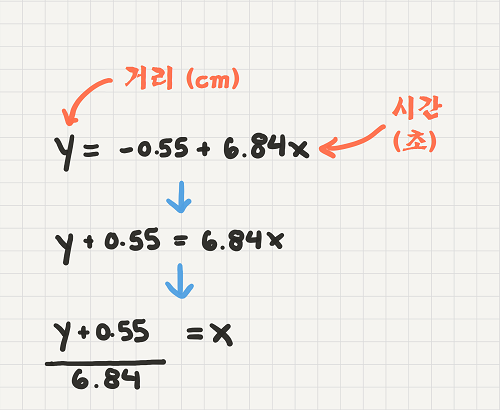 거리 (cm)
시간
(초)
y = -0.55 + 6.84x
y + 0.55 = 6.84x
y + 0.55 = x
6.84